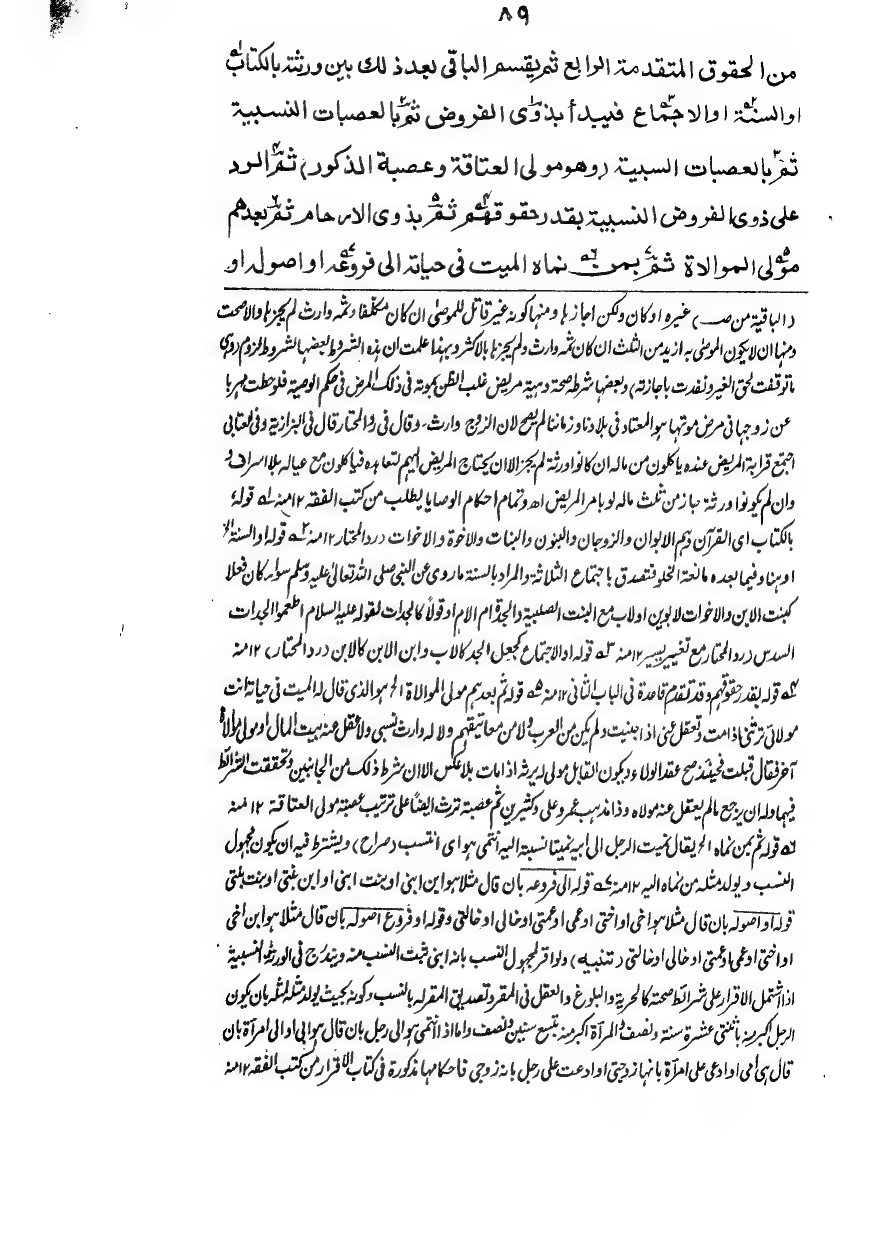 ٨٩
من الحقوق المتقدمة الرابع ثم يقسم الباقى بعد ذلك بين ورثته بالكتاب
او السنة او الاجماع فيبدأ بذوى الفروض ثم بالعصبات النسبية
ثم بالعصبات السببية (وهو مولى العتاقة وعصبة الذكور) ثم الرد
على ذوى الفروض النسبية بقدر حقوقهم ثم بذوى الارحام ثم بعدهم
مولى الموالاة ثم بمن نماه الميت فى حياته الى فروعه او اصوله او
(الباقية من صـ) غيره او كان ولكن اجازها ومنها كونه غير قاتل للموصى ان كان مكلفا وثمه وارث لم يجزها والا صحت
ومنها ان لا يكون الموصى به ازيد من الثلث ان كان ثمه وارث ولم يجزها بالاكثر وبهذا علمت ان هذه الشروط بعضها لشروط لزوم وهى
ما توقفت لحق الغير ونفدت باجازته) وبعضها شرطه صحة وهبة مريض غلب الظن بموته فى ذلك المرض فى حكم الوصية فلو حطت مهرها
عن زوجها فى مرض موتها هو المعتاد فى بلادنا وزماننا لم يصح لان الزوج وارث۔ وقال فى رد المحتار قال فى البزازية وفى العتابى
اجتمع قرابة المريض عنده ياكلون من ماله ان كانوا ورثة لم يجز الا ان يحتاج المريض اليهم لتعاهده فياكلون مع عياله بلا اسراف
وان لم يكونوا ورثة جاز من ثلث ماله لو بامر المريض اھ وتمام احكام الوصايا يطلب من كتب الفقه ١٢ منه له قوله
بالكتاب اى القرآن وهم الابوان والزوجان والبنون والبنات والاخوة والاخوات (رد المحتار ١٢ منه قوله او السنة الخ
او هنا وفيما بعده مانعة الخلو فتصدق باجتماع الثلاثة والمراد بالسنة ما روى عن النبى صلى الله تعالى عليه وسلم سواء كان فعلا
كبنت الابن والاخوات لابوين او لاب مع البنت الصلبية والجدة ام الام او قولا كالجدات لقوله عليه السلام اطعموا الجدات
السدس (رد المحتار مع تغيير يسير ١٢ منه قوله او الاجماع كجعل الجد كالاب وابن الابن كالابن (رد المحتار) ١٢ منه
قوله بقدر حقوقهم وقد تقدم قاعدة فى الباب الثانى ١٢ منه قوله ثم بعدهم مولى الموالاة الخ هو الذى قال له الميت فى حياته انت
مولائى ترثنى اذا مت وتعقل عنى اذا جنيت ولم يكن من العرب ولا من معاتيقهم ولا له وارث نسبى ولا عقل عنه بيت المال او مولى موالاة
آخر فقال قبلت فحينئذ صح عقد الولاء ويكون القابل مولى له يرثه اذا مات بلا عكس الا ان شرط ذلك من الجانبين وتحققت الشرائط
فيهما وله ان يرجع ما لم يعقل عنه مولاه وذا مذهب عمر وعلى وكثيرين ثم عصبة ترث ايضا على ترتيب عصبة مولى العتاقة ١٢ منه
قوله ثم بمن نماه الخ يقال نميت الرجل الى ابيه نميا نسبة اليه انتمى هو اى انتسب (صراح) ويشترط فيه ان يكون مجهول
النسب ويولد مثله من نماه اليه ١٢ منه قوله الى فروعه بان قال مثلا هو ابن ابنى او بنت ابنى او ابن بنتى او بنت بنتى
قوله او اصوله بان قال مثلا هو اخى او اختى او عمى او عمتى او خالى او خالتى وقوله او فروع اصوله بان قال مثلا هو ابن اخى
او اختى او عمى او عمتى او خالى او خالتى (تنبيه) ولو اقر لمجهول النسب بانه ابنى ثبت النسب منه ويندرج فى الورثة النسبية
اذا اشتمل الاقرار على شرائط صحته كالحرية والبلوغ والعقل فى المقر وتصديق المقر له بالنسب وكونه بحيث يولد مثله لمثله بان يكون
الرجل اكبر منه باثنتى عشرة سنة ونصف والمرآة اكبر منه بتسع سنين ونصف واما اذا انتمى هو الى رجل بان قال هو ابى او الى امرآة بان
قال هى امى او ادعى على امرآة بانها زوجتى او ادعت على رجل بانه زوجى فاحكامها مذكورة فى كتاب الاقرار من كتب الفقه ١٢ منه